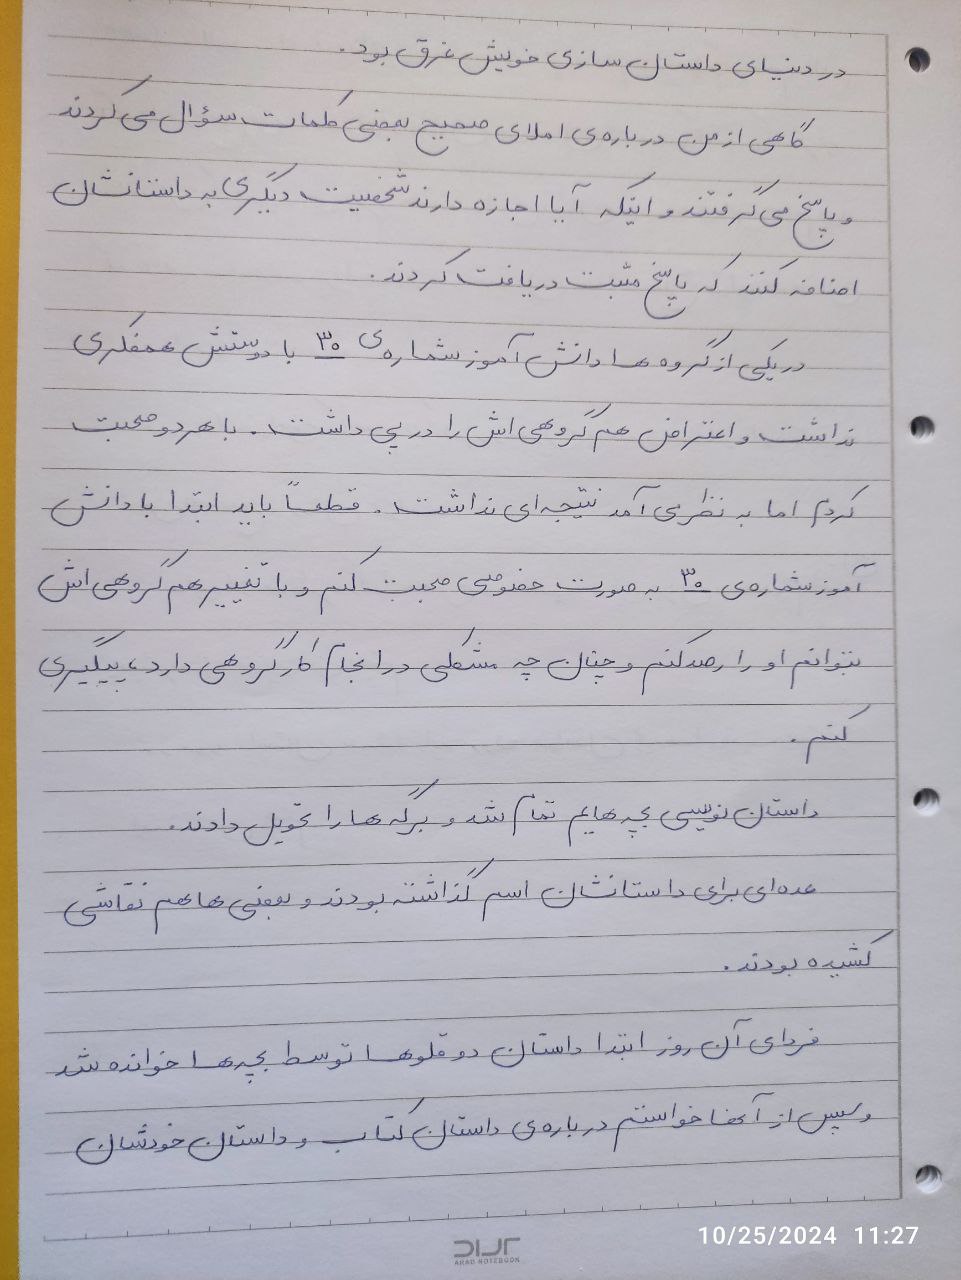 در دنیای داستان سازی خویش غرق بود.
گاهی از من درباره‌ی املای صحیح بعضی کلمات سؤال می‌کردند
و پاسخ می‌گرفتند و اینکه آیا اجازه دارند شخصیت دیگری به داستانشان
اضافه کنند که پاسخ مثبت دریافت کردند.
در یکی از گروه ها دانش آموز شماره‌ی ۳۰ با دوستش همفکری
نداشت و اعتراض هم گروهی اش را در پی داشت. با هر دو صحبت
کردم اما به نظر می آمد نتیجه‌ای نداشت. قطعاً باید ابتدا با دانش
آموز شماره‌ی ۳۰ به صورت خصوصی صحبت کنم و با تغییر هم گروهی اش
بتوانم او را رصد کنم و چنان چه مشکلی در انجام کار گروهی دارد، پیگیری
کنم.
داستان نویسی بچه هایم تمام شد و برگه ها را تحویل دادند.
عده‌ای برای داستانشان اسم گذاشته بودند و بعضی ها هم نقاشی
کشیده بودند.
فردای آن روز ابتدا داستان دوقلوها توسط بچه‌ها خوانده شد
و سپس از آنها خواستم درباره‌ی داستان کتاب و داستان خودشان
آراد
ARAD NOTEBOOK
10/25/2024 11:27